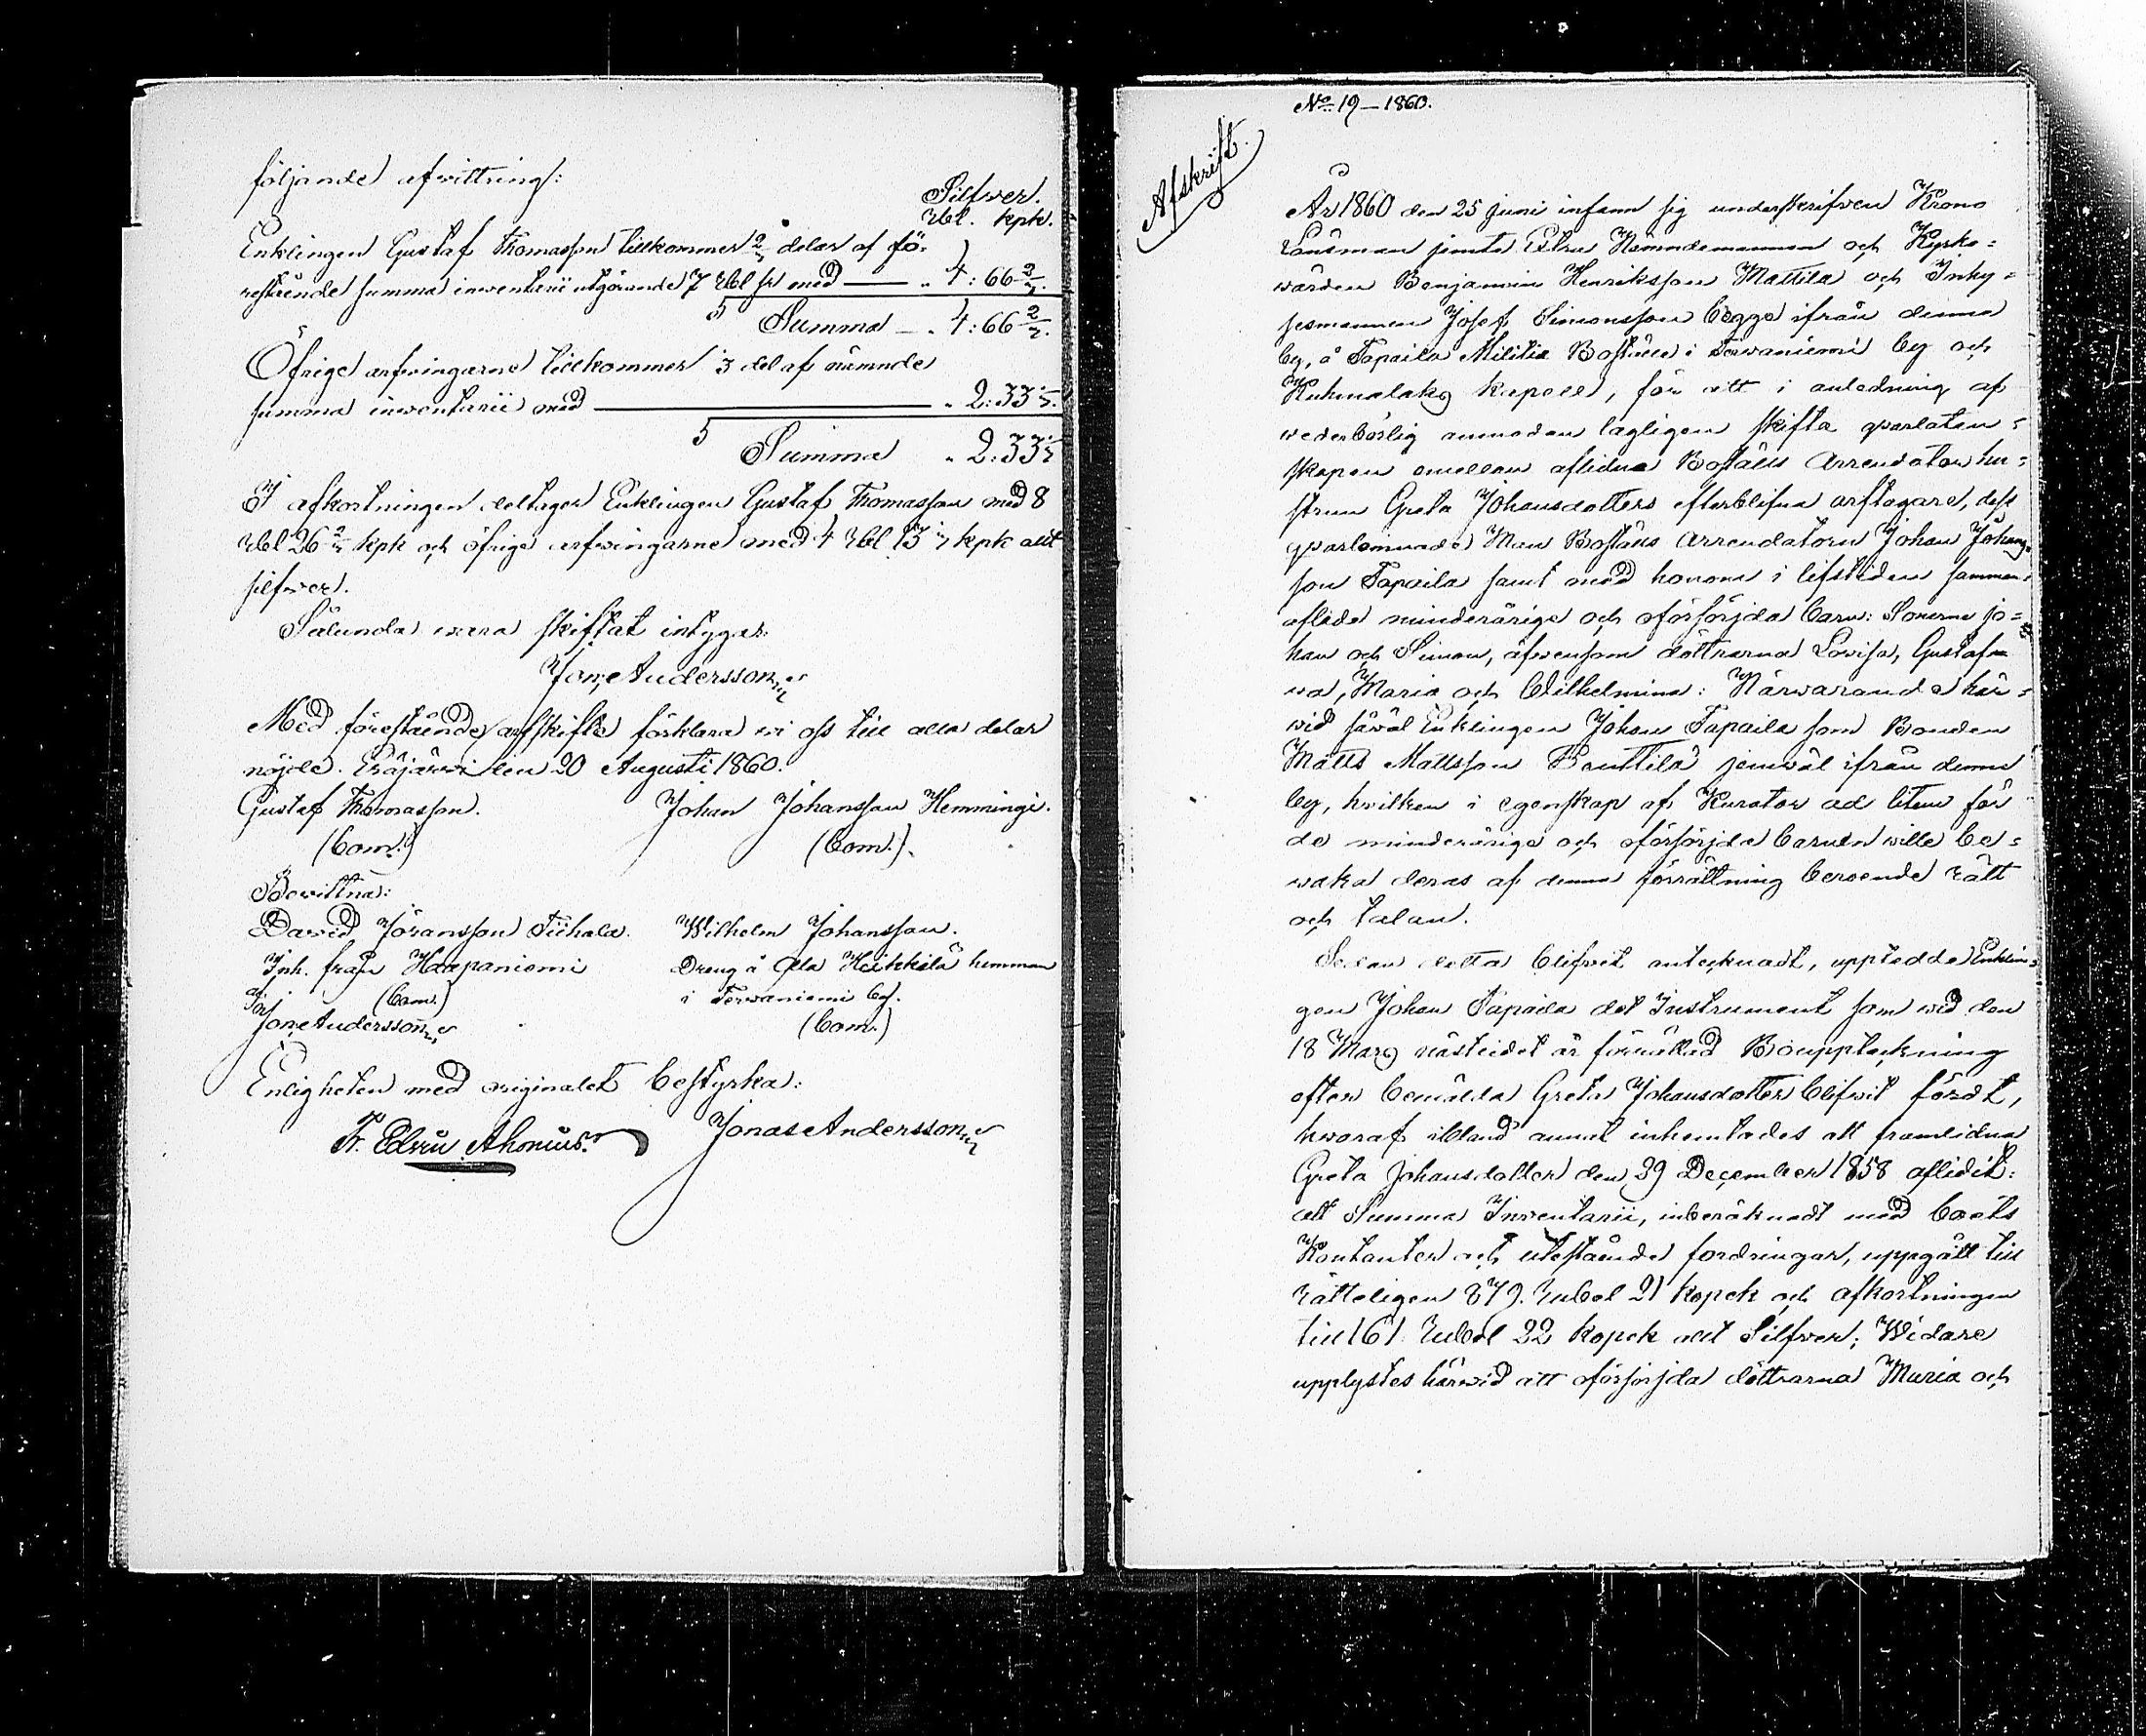 följande afwittring:
Silfwer.
Rbl. kpk.
Enklingen Gustaf Thomasson tillkommer 2/3 delar af fö-
restående summa inventarii utgörande 7 Rbl sr med — " 4: 66 2/3.
Summa — " 4: 66 2/3.
Öfrige arfwingarne tillkommer 1/3 del af nämnde
summa inventarii med — " 2: 33 1/3.
Summa " 2: 33 1/3
I afkortningen deltager Enklingen Gustaf Thomasson med 8
Rbl 26 2/3 kpk och öfrige arfwingarne med 4 Rbl 13 1/3 kpk allt
silfwer.
Sålunda wara skiftat intygar.
Jon: Andersson
Med förestående arfskifte förklara wi oss till alla delar
nöjde. Eräjärwi den 20 Augusti 1860.
Gustaf Thomasson. Johan Johansson Hemmingi.
(bom.) (bom.).
Bewittna:
David Jöransson Tiihala. Wilhelm Johansson.
Inh. från Haapaniemi Dreng å Ala Heikkilä hemman
(bom.) i Terwaniemi by.
Jon: Andersson (bom.)
Enligheten med originalet bestyrka:
Fr. Edvin Ahonius. Jonas Andersson
No 19 – 1860.
Afskrift.
År 1860 den 25 Juni infann sig underskrifven Krono
Länsman jemte Extra Nämndemannen och Kyrko=
wärden Benjamin Henriksson Mattila och Inhy=
sesmannen Josef Simonsson begge ifrån denna
by, å Papaila Militie Boställe i Terwaniemi by och
Kuhmalaks Kapell, för att i anledning af
wederbörlig anmodan lagligen skifta qvarlåten=
skapen emellan aflidna Boställs Arrendator hu=
strun Greta Johansdotters efterblifna arftagare, dess
qvarlemnade Man Boställs Arrendatorn Johan Johans=
son Papaila samt med honom i lifstiden samman=
aflade minderårige och oförsörjda barn: Sönerne Jo=
han och Simon, äfwensom döttrarna Lovisa, Gustaf=
wa, Maria och Wilhelmina: Närwarande här=
wid såwäl Enklingen Johan Papaila som Bonden
Matts Mattsson Penttilä jemwäl ifrån denna
by, hwilken i egenskap af Kurator ad litem för
de minderårige och oförsörjda barnen wille be=
waka deras af denna förrättning beroende rätt
och talan.
Sedan detta blifwit antecknadt, uppledde Enklin=
gen Johan Papaila det Instrument som wid den
18 Mars nästledet år förrättad Bouppteckning
efter bemälda Greta Johansdotter blifwit fördt,
hwaraf ibland annat inhemtades att framlidna
Greta Johansdotter den 29 December 1858 aflidit:
att Summa Inventarii, inberäknadt med boets
Kontanter och utestående fordringar, uppgått till
rätteligen 879. rubel 21 kopek och afkortningen
till 161 Rubel 22 kopek allt Silfwer; Widare
upplystes härwid att oförsörjda döttrarna Maria och